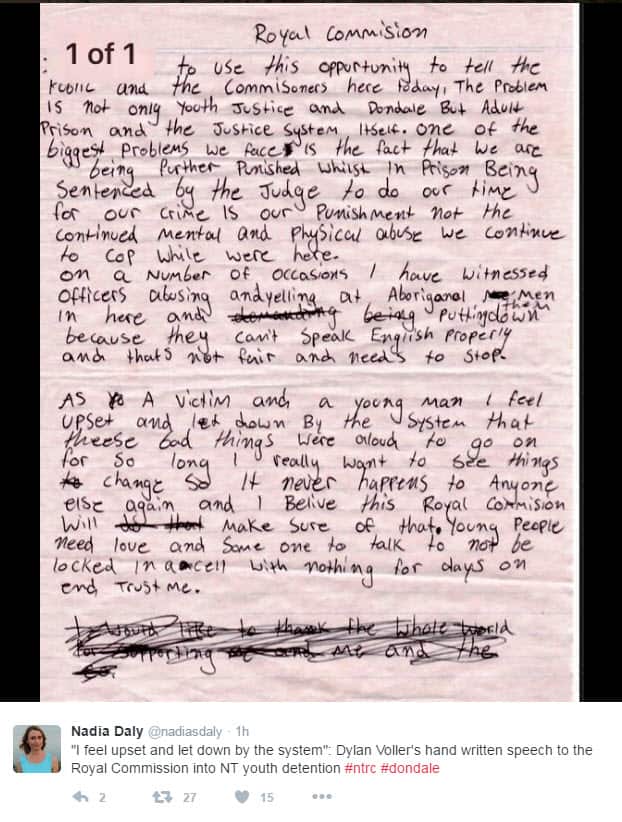 Royal Commision
1 of 1
: to use this opportunity to tell the
Public and the Commisoners here today, The Problem
is not only Youth Justice and Dondale But Adult
Prison and the Justice System Itself. one of the
biggest Problems we face is the fact that we are
being Further Punished whilst In Prison Being
Sentenced by the Judge to do our time
for our crime Is our Punishment not the
continued mental and Physical abuse we continue
to cop while were here.
on a Number of occasions I have witnessed
officers abusing and yelling at Aboriganal Men
In here and demanding being Putting them down
because they can't Speak English properly
and thats not fair and needs to stop.
AS A Victim and a young man I feel
UPSet and let down By the System that
theese bad things were aloud to go on
for So long I really want to see things
to change so It never happens to Anyone
else again and I Belive this Royal Commision
Will do that Make Sure of that. Young People
need love and Some one to talk to not be
locked In a cell with nothing for days on
end Trust me.
I would like to thank the whole world
for supporting me and me and the
Nadia Daly @nadiasdaly · 1h
"I feel upset and let down by the system": Dylan Voller's hand written speech to the
Royal Commission into NT youth detention #ntrc #dondale
2 27 15